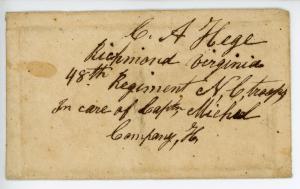 C. A Hege
Richmond virginia
48th Regiment N, C troops
In care of Capt, Michel
Company, H,